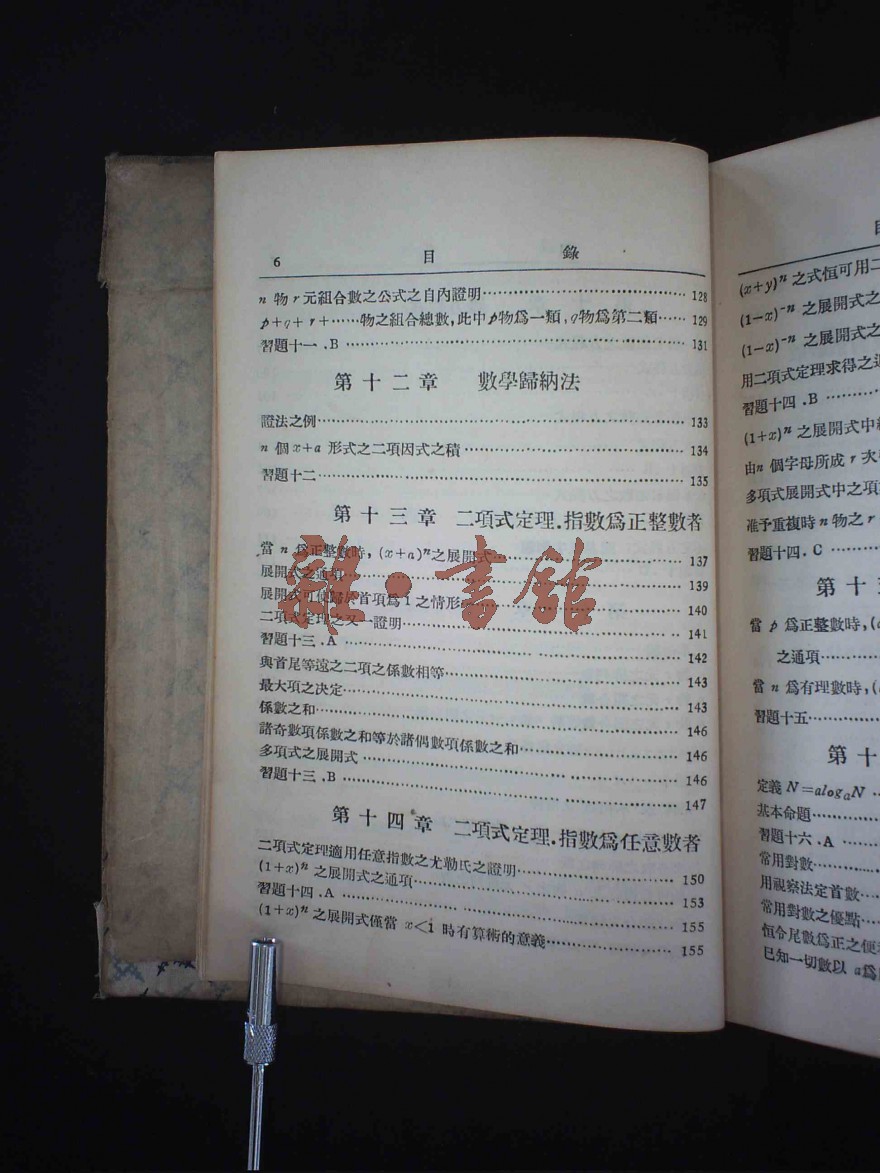 6 目錄
n 物 r 元組合數之公式之自內證明 128
p+q+r+……物之組合總數,此中p物爲一類,q物爲第二類 129
習題十一.B 131
第十二章 數學歸納法
證法之例 133
n 個 x+a 形式之二項因式之積 134
習題十二 135
第十三章 二項式定理.指數爲正整數者
當 n 爲正整數時,(x+a)ⁿ之展開式 137
展開式之通項 139
展開式可使歸於首項爲 1 之情形 140
二項式定理之又一證明 141
習題十三.A 142
與首尾等遠之二項之係數相等 143
最大項之決定 143
係數之和 146
諸奇數項係數之和等於諸偶數項係數之和 146
多項式之展開式 146
習題十三.B 147
第十四章 二項式定理.指數爲任意數者
二項式定理適用任意指數之尤勒氏之證明 150
(1+x)ⁿ 之展開式之通項 153
習題十四.A 155
(1+x)ⁿ 之展開式僅當 x<1 時有算術的意義 155
雜·書館
(x+y)ⁿ 之式恒可用二
(1-x)⁻ⁿ 之展開式之
(1-x)⁻ⁿ 之展開式之
用二項式定理求得之
習題十四.B
(1+x)ⁿ 之展開式中
由n 個字母所成 r 次
多項式展開式中之項
准予重複時 n 物之 r
習題十四.C
第十
當 p 爲正整數時,(
之通項
當 n 爲有理數時,(
習題十五
第十
定義 N=alogₐN
基本命題
習題十六.A
常用對數
用視察法定首數
常用對數之優點
恒令尾數爲正之便
已知一切數以 a爲